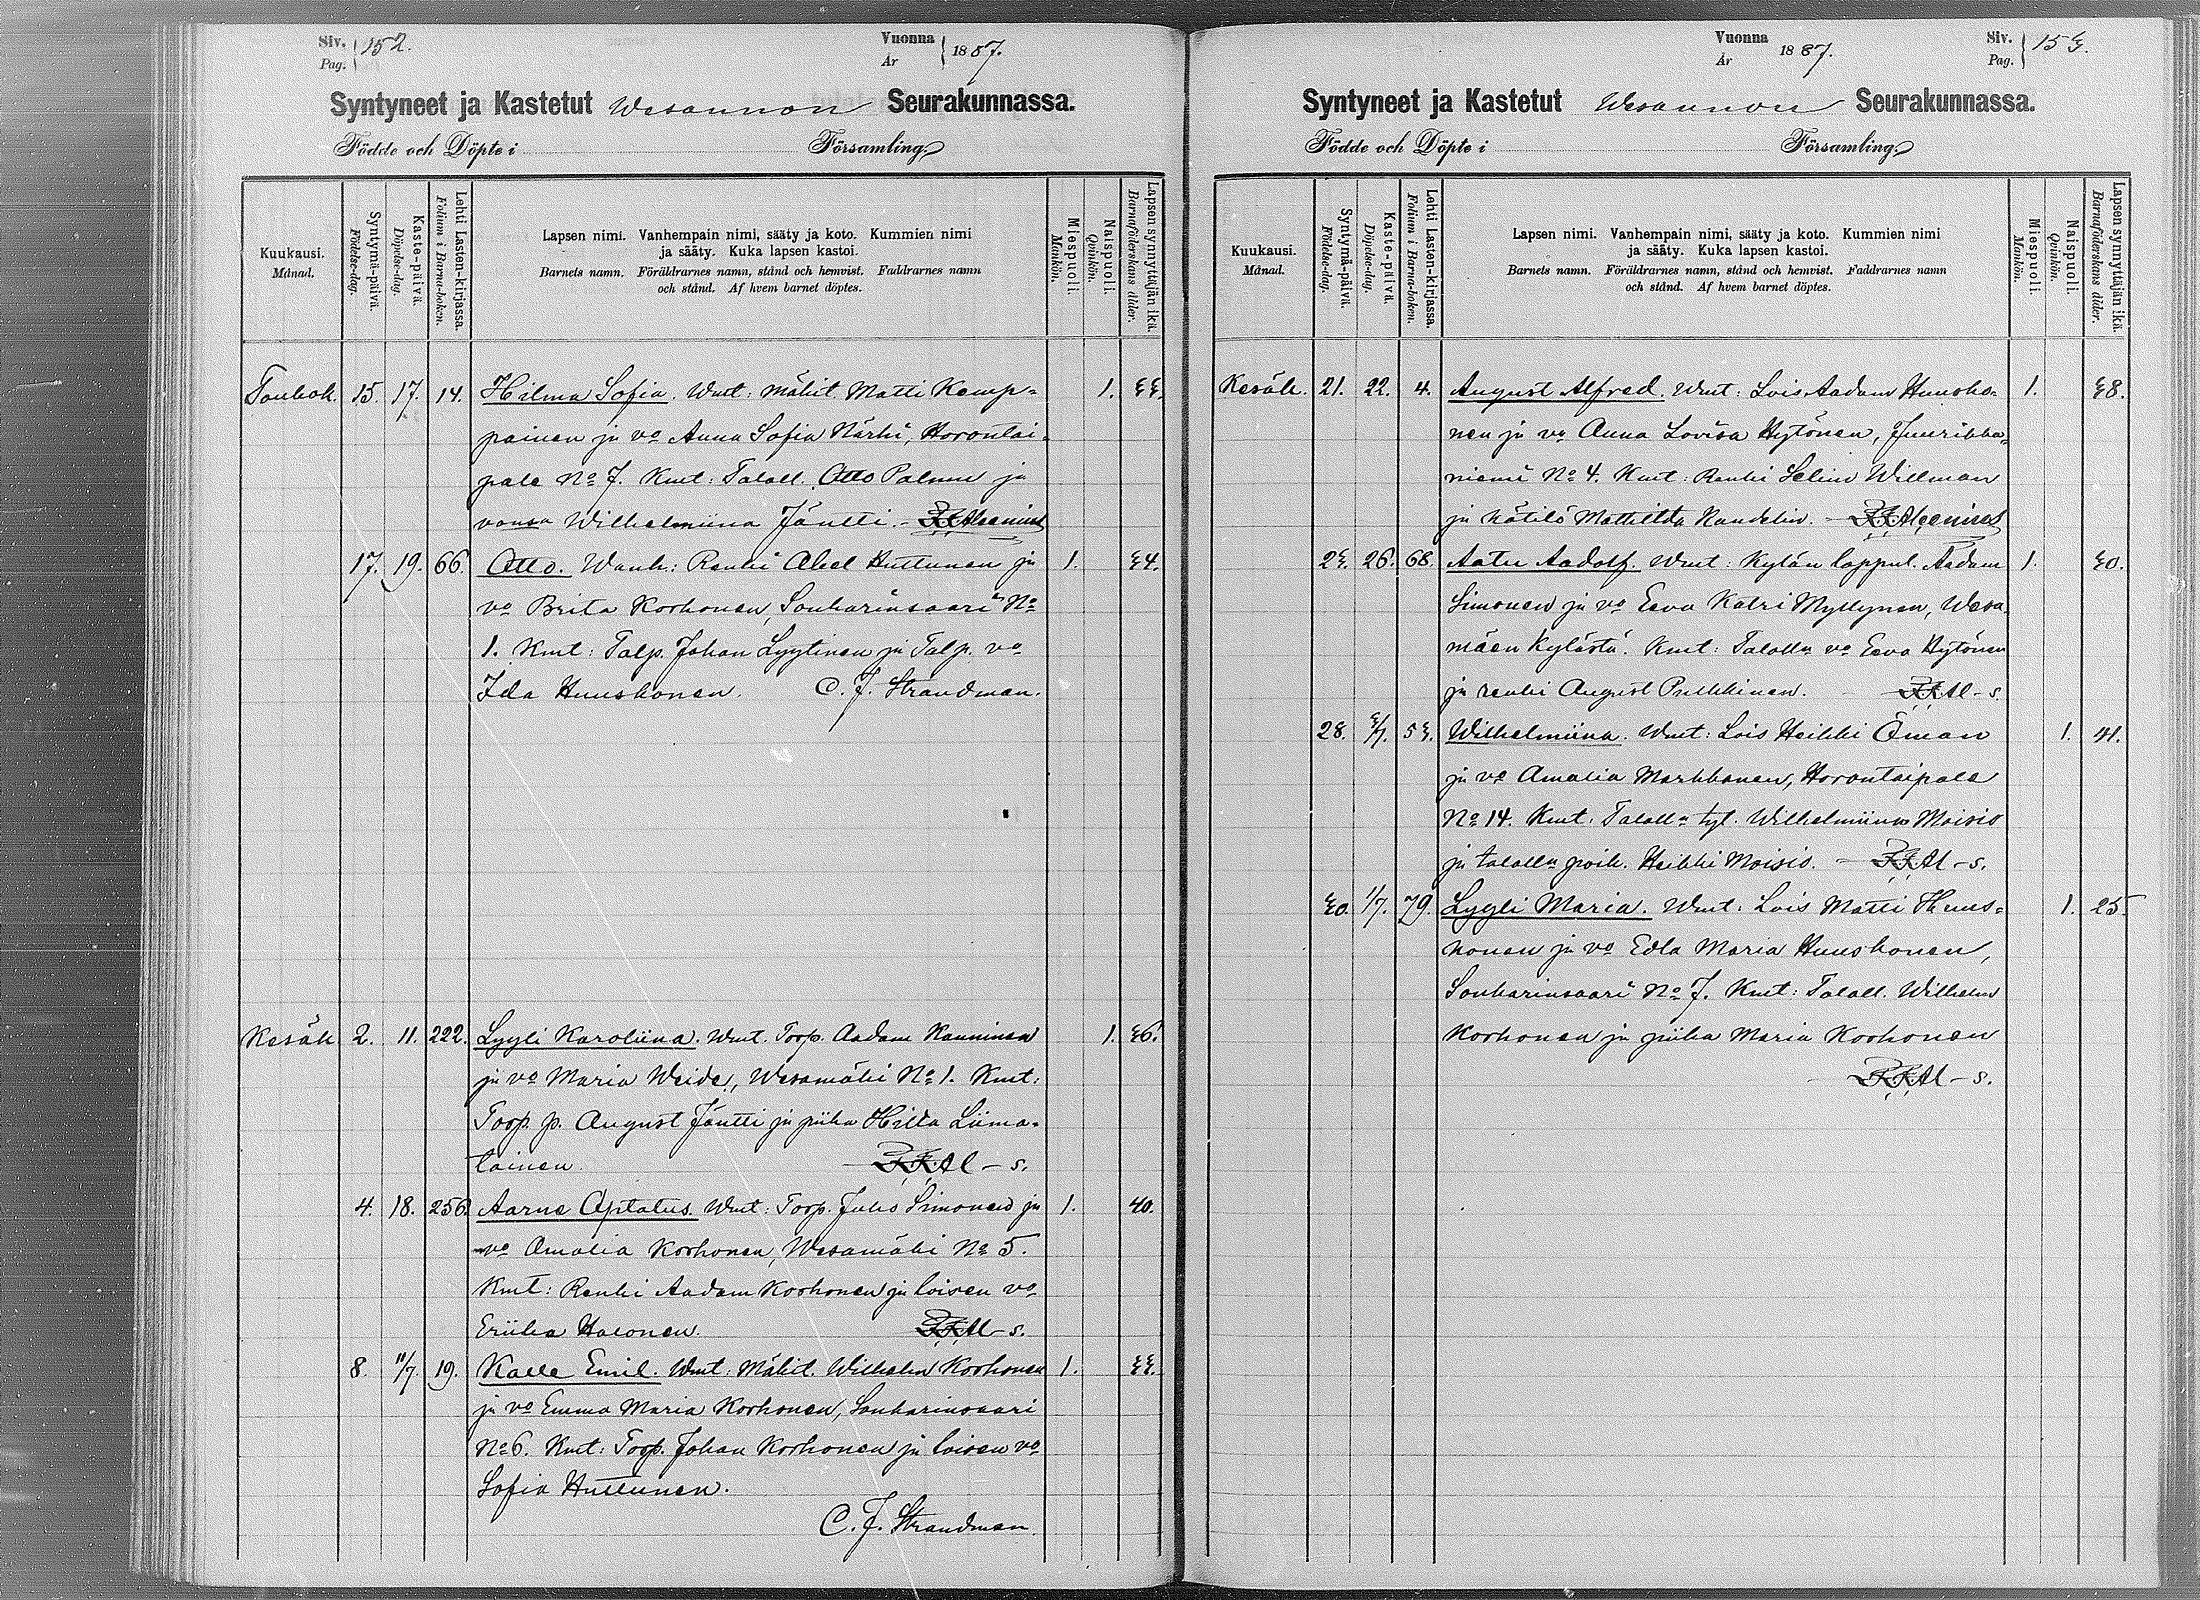 Siv. Pag. 152. Vuonna År 1887.
Syntyneet ja Kastetut Wesannon Seurakunnassa.
Födde och Döpte i Församling.
Kuukausi. Månad.
Syntymä-päivä. Födelse-dag.
Kaste-päivä. Döpelse-dag.
Lehti Lasten-kirjassa. Folium i Barna-boken.
Lapsen nimi. Vanhempain nimi, sääty ja koto. Kummien nimi
ja sääty. Kuka lapsen kastoi.
Barnets namn. Föräldrarnes namn, stånd och hemvist. Faddrarnes namn
och stånd. Af hvem barnet döptes.
Miespuoli. Mankön.
Naispuoli. Qvinkön.
Lapsen synnyttäjän ikä. Barnaföderskans ålder.
Toukok. 15. 17. 14. Hilma Sofia. Wmt: Mäkit. Matti Kemp= 1. 33.
painen ja vo Anna Sofia Närhi, Horontai=
pale No 7. Kmt: Taloll. Otto Palmu ja
vaimo Wilhelmiina Jäntti.
17. 19. 66. Otto. Wanh: Renki Abel Huttunen ja 1. 34.
vo Brita Korhonen, Sonkarinsaari No
1. Kmt: Talp. Johan Lyytinen ja Talp. vo
Ida Huuskonen. C. J. Strandman.
Kesäk. 2. 11. 222. Lyyli Karoliina. Wmt. Torp. Aadam Kauninen 1. 36.
ja vo Maria Weide, Wesamäki No 1. Kmt:
Torp. p. August Jäntti ja piika Hilda Liima=
tainen. Al–s.
4. 18. 256. Aarne Optatus. Wmt: Torp. Juho Simonen ja 1. 40.
vo Amalia Korhonen, Wesamäki No 5.
Kmt: Renki Aadam Korhonen ja loisen vo
Eriika Halonen. Al–s.
8. 11/7. 19. Kalle Emil. Wmt: Mäkit. Wilhelm Korhonen 1. 33.
ja vo Emma Maria Korhonen, Sonkarinsaari
No 6. Kmt: Torp. Johan Korhonen ja loisen vo
Sofia Huttunen.
C. J. Strandman.
Vuonna År 1887. Siv. Pag. 153.
Syntyneet ja Kastetut Wesannon Seurakunnassa.
Födde och Döpte i Församling.
Kuukausi. Månad.
Syntymä-päivä. Födelse-dag.
Kaste-päivä. Döpelse-dag.
Lehti Lasten-kirjassa. Folium i Barna-boken.
Lapsen nimi. Vanhempain nimi, sääty ja koto. Kummien nimi
ja sääty. Kuka lapsen kastoi.
Barnets namn. Föräldrarnes namn, stånd och hemvist. Faddrarnes namn
och stånd. Af hvem barnet döptes.
Miespuoli. Mankön.
Naispuoli. Qvinkön.
Lapsen synnyttäjän ikä. Barnaföderskans ålder.
Kesäk. 21. 22. 4. August Alfred. Wmt: Lois Aadam Huusko= 1. 38.
nen ja vo Anna Lovisa Hytönen, Juurikka=
niemi No 4. Kmt: Renki Selim Willman
ja kätilö Mathilda Randelin.
23. 26. 68. Aatu Aadolf. Wmt: Kylän loppul. Aadam 1. 30.
Simonen ja vo Eeva Katri Myllynen, Wesa=
mäen kylästä. Kmt: Talolln vo Eeva Hytönen
ja renki August Pulkkinen. Al–s.
28. 3/7. 53. Wilhelmiina. Wmt: Lois Heikki Öman 1. 41.
ja vo Amalia Markkanen, Horontaipale
No 14. Kmt. Talolln tyt. Wilhelmiina Moisio
ja talolln poik. Heikki Moisio. Al–s.
30. 1/7. 79. Lyyli Maria. Wmt: Lois Matti Huus= 1. 25.
konen ja vo Edla Maria Huuskonen,
Sonkarinsaari No 7. Kmt: Taloll. Wilhelm
Korhonen ja piika Maria Korhonen
Al–s.